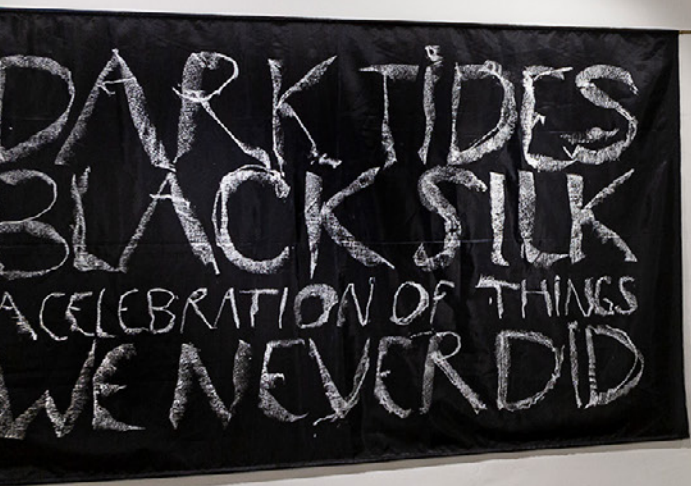 DARK TIDES
BLACK SILK
A CELEBRATION OF THINGS
WE NEVER DID